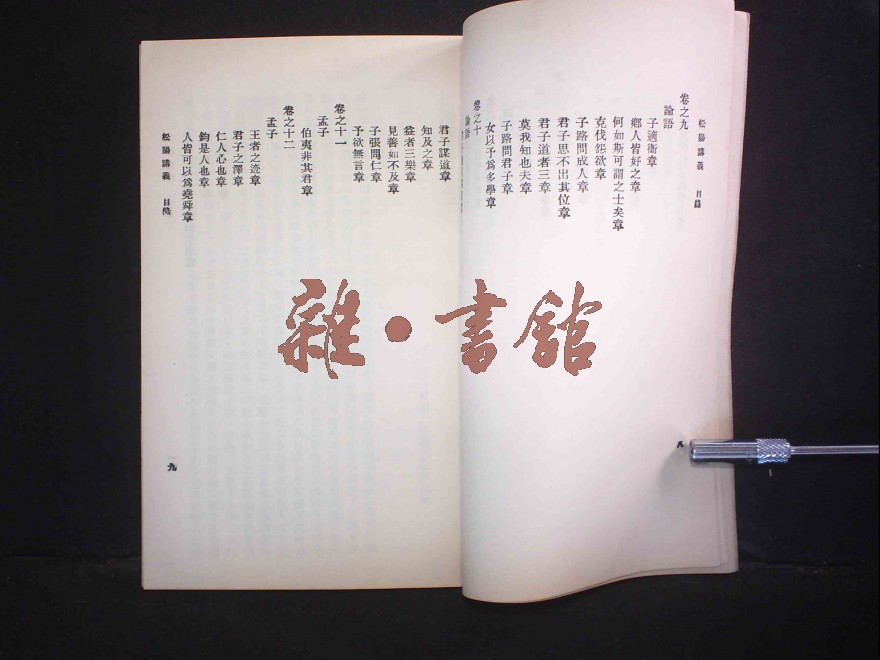 松陽講義 目錄
卷之九
論語
子適衞章
鄉人皆好之章
何如斯可謂之士矣章
克伐怨欲章
子路問成人章
君子思不出其位章
君子道者三章
莫我知也夫章
子路問君子章
女以予爲多學章
卷之十
論語
八
君子謀道章
知及之章
益者三樂章
見善如不及章
子張問仁章
予欲無言章
卷之十一
孟子
伯夷非其君章
卷之十二
孟子
王者之迹章
君子之澤章
仁人心也章
鈞是人也章
人皆可以爲堯舜章
松陽講義 目錄
九
雜·書館